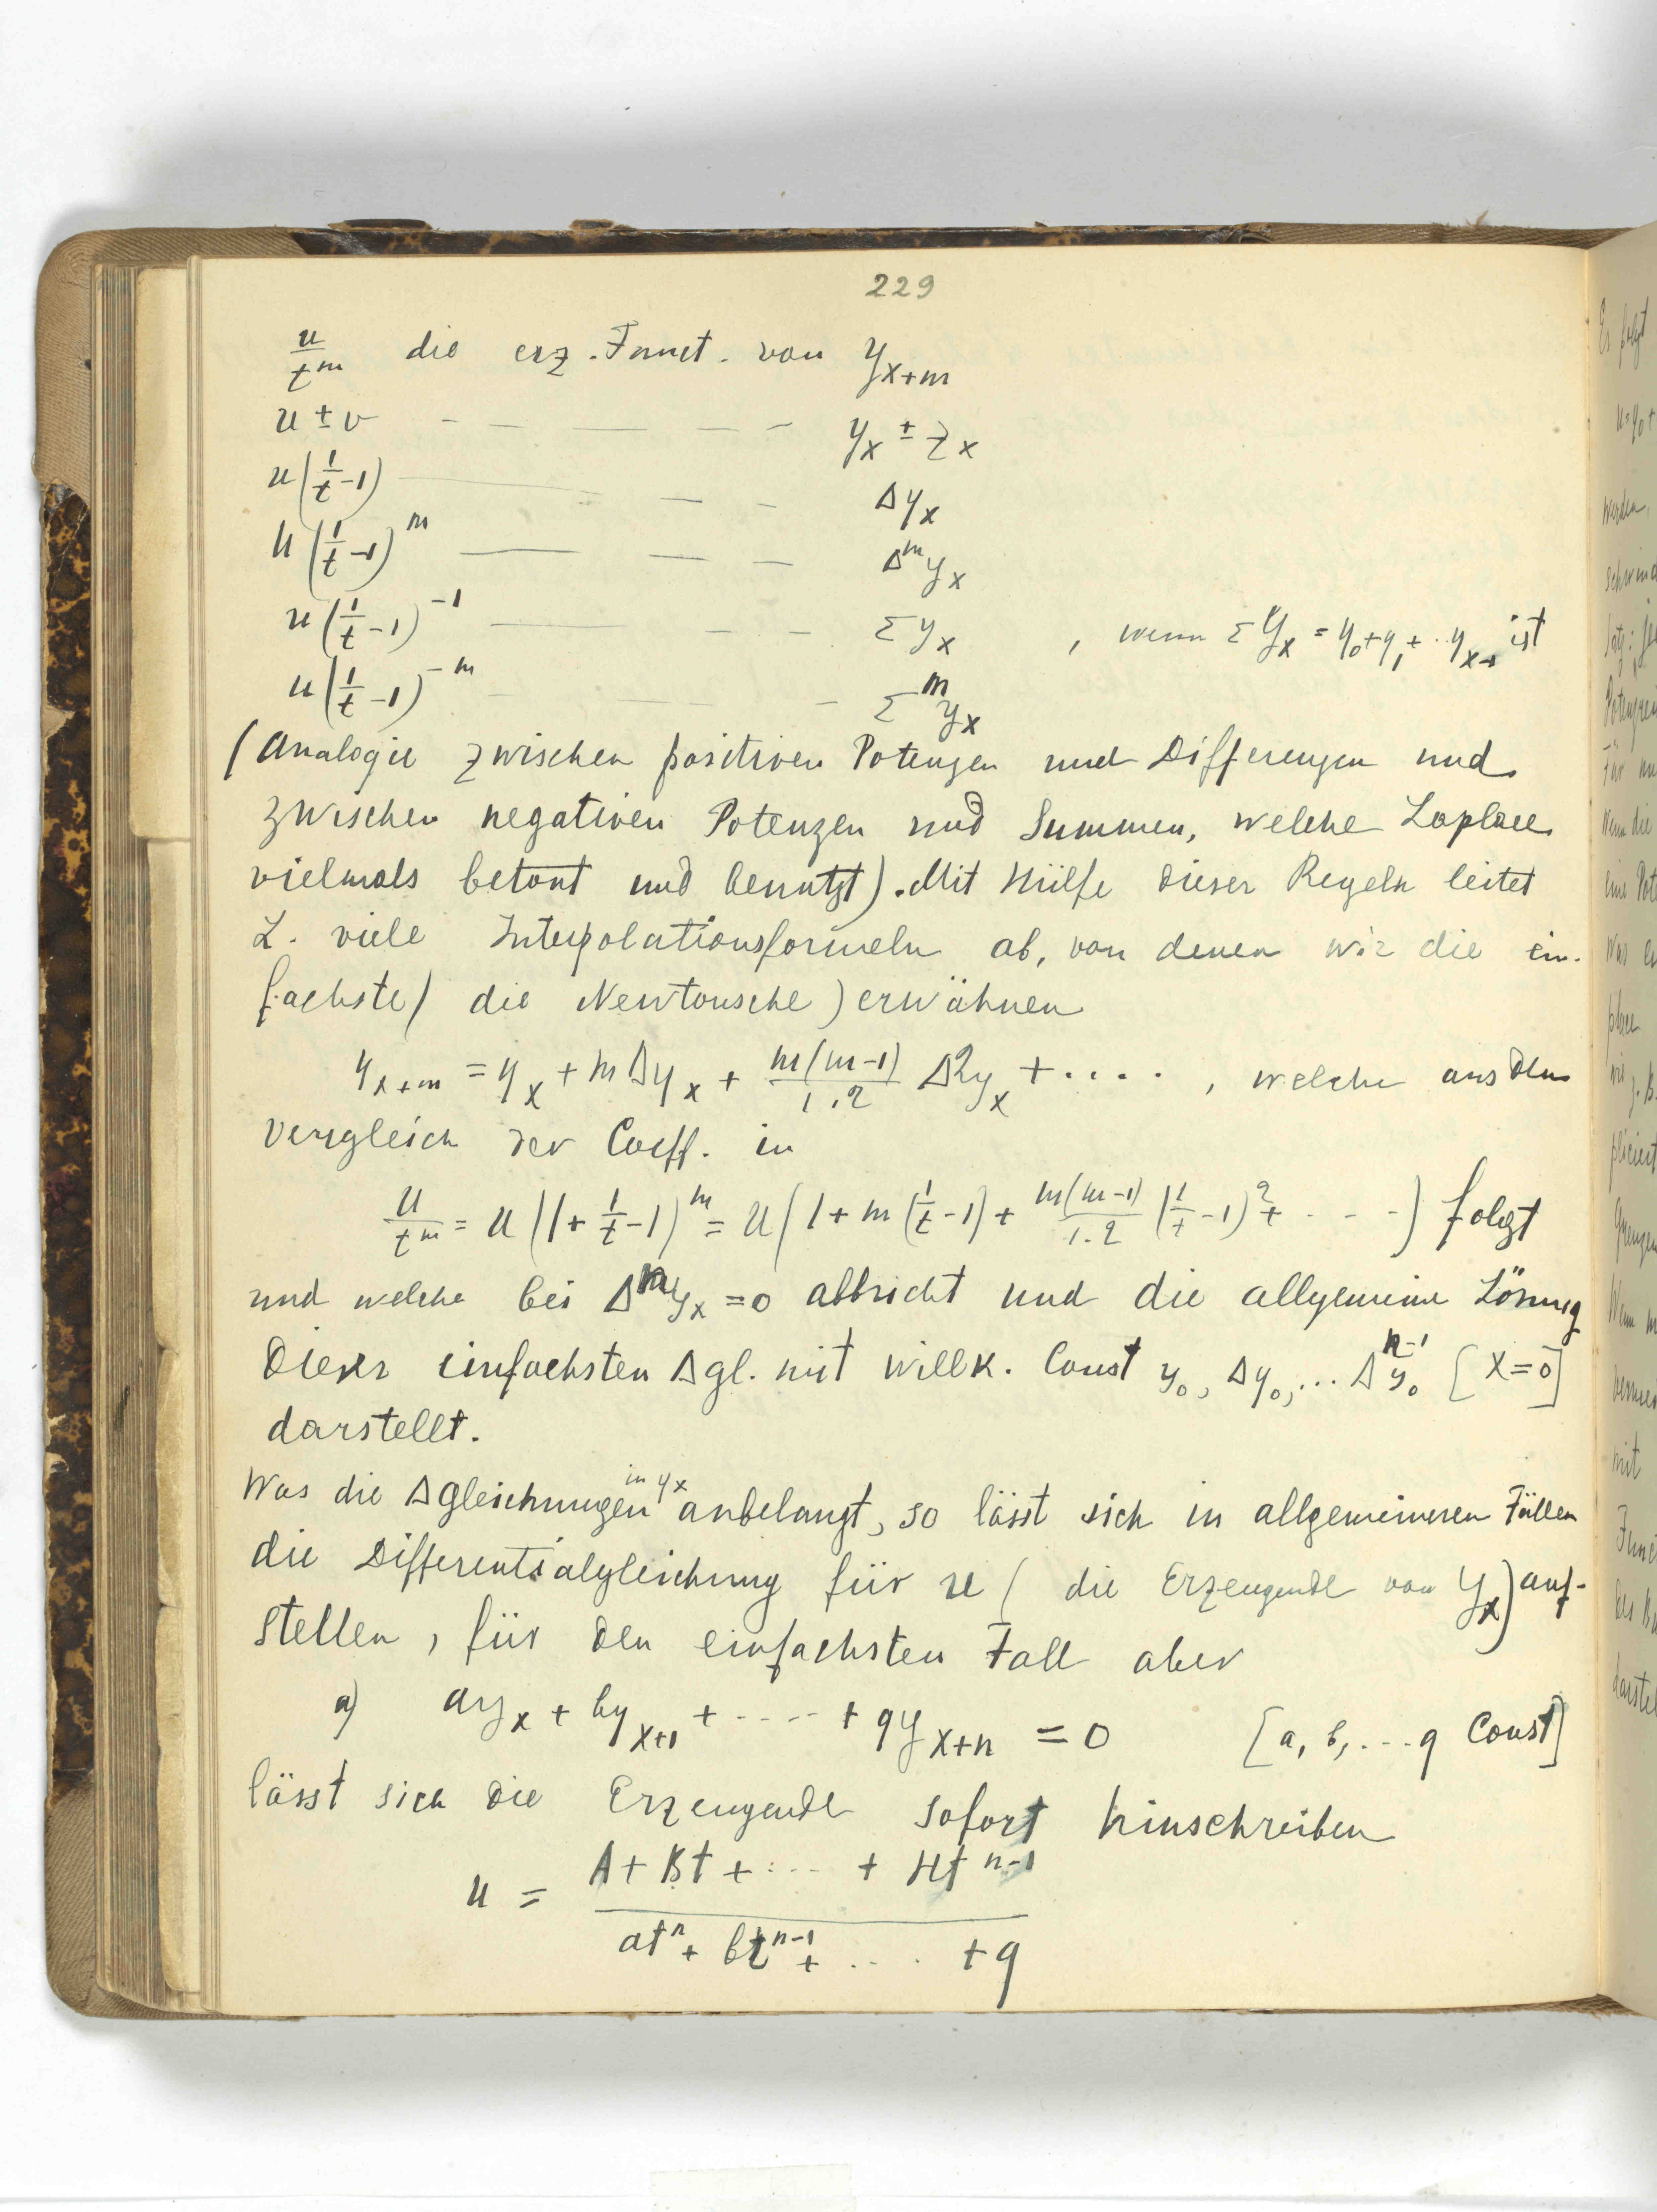 229
u/t^m die erz. Funct. von y_{x+m}
u ± v — — — — — — y_x ± z_x
u(1/t - 1) — — — Δy_x
u(1/t - 1)^m — — — Δ^m y_x
u(1/t - 1)^{-1} — — — Σy_x , wenn Σy_x = y_0 + y_1 + ·· y_{x-1} ist
u(1/t - 1)^{-m} — — — Σ^m y_x
(Analogie zwischen positiven Potenzen und Differenzen und
zwischen negativen Potenzen und Summen, welche Laplace
vielmals betont und benutzt). Mit Hülfe dieser Regeln leitet
L. viele Interpolationsformeln ab, von denen wir die ein-
fachste (die Newtonsche) erwähnen
y_{x+m} = y_x + mΔy_x + m(m-1)/1.2 Δ²y_x + ···· , welche aus dem
Vergleich der Coeff. in
u/t^m = u(1 + 1/t - 1)^m = u(1 + m(1/t - 1) + m(m-1)/1.2 (1/t - 1)² + - - -) folgt
und welche bei Δ^n y_x = 0 abbricht und die allgemeine Lösung
dieser einfachsten Δgl. mit willk. Const y_0, Δy_0, ... Δ^{n-1} y_0 [x=0]
darstellt.
Was die Δgleichungen in y_x anbelangt, so lässt sich in allgemeineren Fällen
die Differentialgleichung für u (die Erzeugende von y_x) auf-
stellen, für den einfachsten Fall aber
a) ay_x + by_{x+1} + ---- + qy_{x+n} = 0 [a, b, ... q Const]
lässt sich die Erzeugende sofort hinschreiben
u = (A + Bt + ··· + Ht^{n-1}) / (at^n + bt^{n-1} + ··· + q)